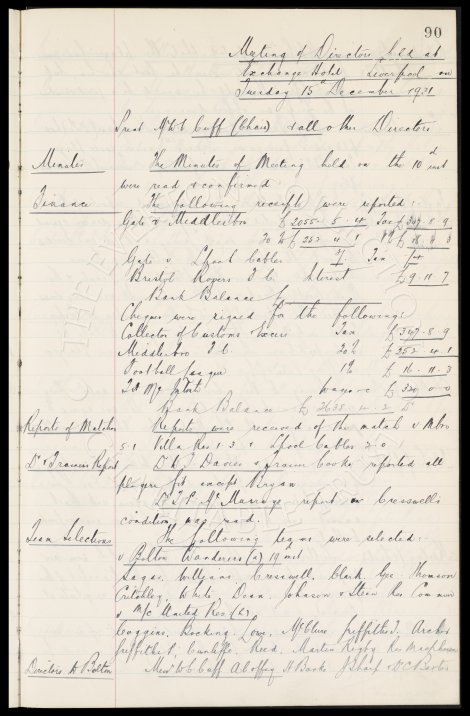 90
Meeting of Directors held at
Exchange Hotel Liverpool on
Tuesday 15th December 1931
Present Mr W C Cuff (Chair) & all other Directors
Minutes The Minutes of Meeting held on the 10th inst
were read & confirmed
Finance The following receipts were reported:
Gate v Middlesbro £2055-5-4 Tax £347-8-9
20% £252-4-1 1% £16-11-3
Gate v L'pool Cables Tax
Bristol Rovers F.C. Interest £9-11-7
Bank Balance £
Cheques were signed for the following:
Collector of Customs & Excise Tax £347-8-9
Middlesbro F.C. 20% £252-4-1
Football League 1% £16-11-3
Wages £320-0-0
Bank Balance £2638-4-2
Reports of Matches Reports were received of the match v M'bro
5-1 Villa Res 1-3 & L'pool Cables 2-0
Dr & Trainers Report Dr R J Davies & Trainer Cooke reported all
players fit except
report on Cresswell's
condition was read.
Team Selections The following teams were selected:
v Bolton Wanderers (a) 19th inst
Sagar, Williams, Cresswell, Clark, Gee, Thomson
Critchley, White, Dean, Johnson & Stein Res
v M/c United Res (h)
Coggins, Bocking, Lowe, McClure, Griffiths J, Archer
Griffiths P, Cunliffe, Reed, Martin, Rigby Res MacPherson
Directors to Bolton Messrs W C Cuff A Coffey H Banks J Sharp & D C
THE EVERTON COLLECTION